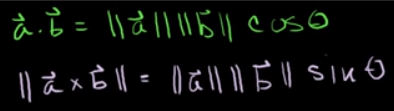 a⃗ . b⃗ = ||a⃗|| ||b⃗|| cosθ
|| a⃗ × b⃗ || = ||a⃗|| || b⃗ || sinθ